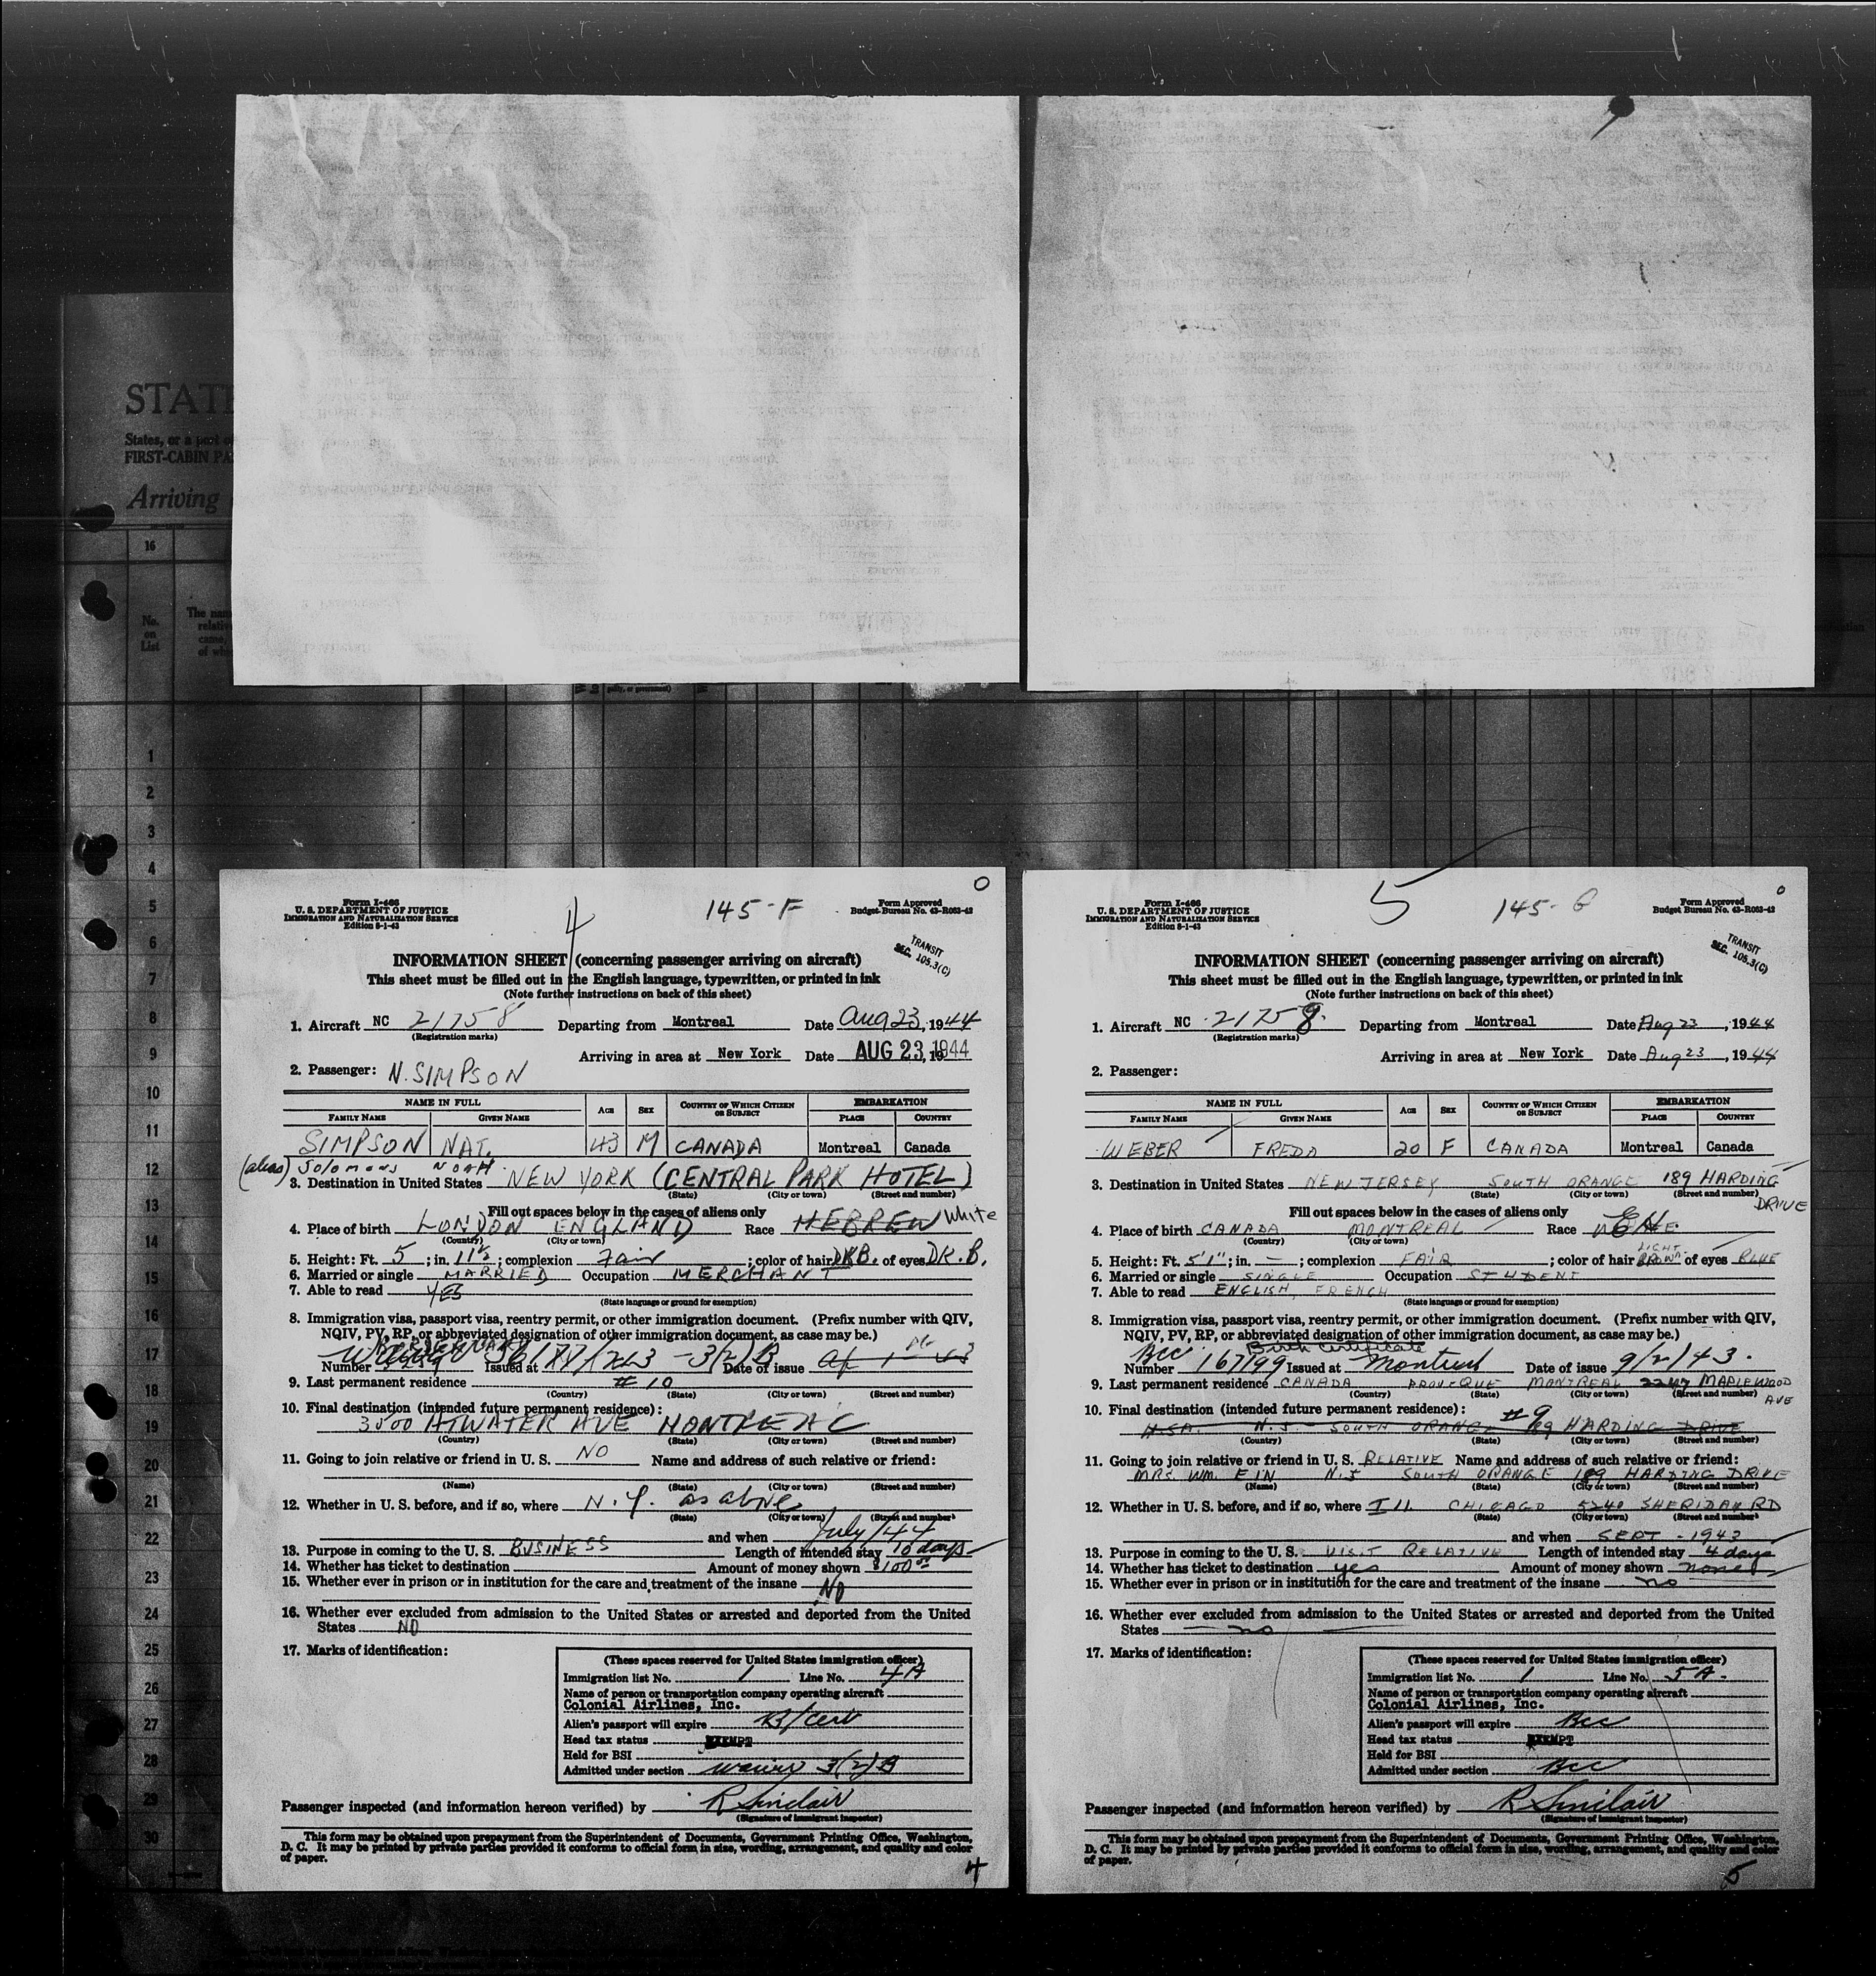 STATE
States, or a port o
FIRST-CABIN PA
Arriving
16
No.
on
List
The nam
relativ
came,
of wh
1
2
3
4
5
6
7
8
9
10
11
12
13
14
15
16
17
18
19
20
21
22
23
24
25
26
27
28
29
30
Form I-466
U. S. DEPARTMENT OF JUSTICE
IMMIGRATION AND NATURALIZATION SERVICE
Edition 8-1-43
4
145-F
0
Form Approved
Budget Bureau No. 43-R063-42
TRANSIT
SEC. 105.3(C)
INFORMATION SHEET (concerning passenger arriving on aircraft)
This sheet must be filled out in the English language, typewritten, or printed in ink
(Note further instructions on back of this sheet)
1. Aircraft NC 21758 Departing from Montreal Date Aug 23, 1944
(Registration marks)
Arriving in area at New York Date AUG 23, 1944
2. Passenger: N. SIMPSON
NAME IN FULL AGE SEX COUNTRY OF WHICH CITIZEN OR SUBJECT EMBARKATION
FAMILY NAME GIVEN NAME PLACE COUNTRY
SIMPSON NAT. 43 M CANADA Montreal Canada
(alias) Solomons NOAH.
3. Destination in United States NEW YORK (CENTRAL PARK HOTEL)
(State) (City or town) (Street and number)
Fill out spaces below in the cases of aliens only
4. Place of birth LONDON ENGLAND Race HEBREW White
(Country) (City or town)
5. Height: Ft. 5; in. 11½; complexion Fair; color of hair DKB. of eyes DR. B.
6. Married or single MARRIED Occupation MERCHANT
7. Able to read YES
(State language or ground for exemption)
8. Immigration visa, passport visa, reentry permit, or other immigration document. (Prefix number with QIV,
NQIV, PV, RP, or abbreviated designation of other immigration document, as case may be.)
Number Issued at - 3(2)B Date of issue
9. Last permanent residence # 10
(Country) (State) (City or town) (Street and number)
10. Final destination (intended future permanent residence):
3000 ATWATER AVE MONTREAL
(Country) (State) (City or town) (Street and number)
11. Going to join relative or friend in U. S. NO Name and address of such relative or friend:
(Name) (State) (City or town) (Street and number)
12. Whether in U. S. before, and if so, where N.Y. as above
(State) (City or town) (Street and number)
and when July/44
13. Purpose in coming to the U. S. BUSINESS Length of intended stay 10 days
14. Whether has ticket to destination Amount of money shown $100.00
15. Whether ever in prison or in institution for the care and treatment of the insane NO
16. Whether ever excluded from admission to the United States or arrested and deported from the United
States NO
17. Marks of identification:
(These spaces reserved for United States immigration officer)
Immigration list No. 1 Line No. 4A
Name of person or transportation company operating aircraft
Colonial Airlines, Inc.
Alien's passport will expire B/Cert
Head tax status EXEMPT
Held for BSI
Admitted under section waiver 3(2)B
Passenger inspected (and information hereon verified) by R Sinclair
(Signature of immigrant inspector)
This form may be obtained upon prepayment from the Superintendent of Documents, Government Printing Office, Washington,
D. C. It may be printed by private parties provided it conforms to official form in size, wording, arrangement, and quality and color
of paper.
4
Form I-466
U. S. DEPARTMENT OF JUSTICE
IMMIGRATION AND NATURALIZATION SERVICE
Edition 8-1-43
5
145-G
0
Form Approved
Budget Bureau No. 43-R063-42
TRANSIT
SEC. 105.3(C)
INFORMATION SHEET (concerning passenger arriving on aircraft)
This sheet must be filled out in the English language, typewritten, or printed in ink
(Note further instructions on back of this sheet)
1. Aircraft NC 21758. Departing from Montreal Date Aug 23, 1944
(Registration marks)
Arriving in area at New York Date Aug 23, 1944
2. Passenger:
NAME IN FULL AGE SEX COUNTRY OF WHICH CITIZEN OR SUBJECT EMBARKATION
FAMILY NAME GIVEN NAME PLACE COUNTRY
WEBER FREDA 20 F CANADA Montreal Canada
3. Destination in United States NEW JERSEY SOUTH ORANGE 189 HARDING
(State) (City or town) (Street and number)
DRIVE
Fill out spaces below in the cases of aliens only
4. Place of birth CANADA MONTREAL Race
(Country) (City or town)
5. Height: Ft. 5'1"; in. —; complexion FAIR; color of hair LIGHT BROWN of eyes BLUE
6. Married or single SINGLE Occupation STUDENT
7. Able to read ENGLISH, FRENCH
(State language or ground for exemption)
8. Immigration visa, passport visa, reentry permit, or other immigration document. (Prefix number with QIV,
NQIV, PV, RP, or abbreviated designation of other immigration document, as case may be.)
Bcc Birth Certificate
Number 167199 Issued at Montreal Date of issue 9/2/43.
9. Last permanent residence CANADA MONTREAL 2247 MAPLEWOOD
(Country) (State) (City or town) (Street and number)
AVE
10. Final destination (intended future permanent residence): #9
U.S.A. N.J. SOUTH ORANGE 189 HARDING DRIVE
(Country) (State) (City or town) (Street and number)
11. Going to join relative or friend in U. S. RELATIVE Name and address of such relative or friend:
MRS. WM. EIN N.J SOUTH ORANGE 189 HARDING DRIVE
(Name) (State) (City or town) (Street and number)
12. Whether in U. S. before, and if so, where Ill. CHICAGO 5240 SHERIDAN RD
(State) (City or town) (Street and number)
and when SEPT - 1943
13. Purpose in coming to the U. S. VISIT RELATIVE Length of intended stay 4 days
14. Whether has ticket to destination yes Amount of money shown none
15. Whether ever in prison or in institution for the care and treatment of the insane no
16. Whether ever excluded from admission to the United States or arrested and deported from the United
States no
17. Marks of identification:
(These spaces reserved for United States immigration officer)
Immigration list No. 1 Line No. 5A.
Name of person or transportation company operating aircraft
Colonial Airlines, Inc.
Alien's passport will expire Bcc
Head tax status EXEMPT
Held for BSI
Admitted under section Bcc
Passenger inspected (and information hereon verified) by R Sinclair
(Signature of immigrant inspector)
This form may be obtained upon prepayment from the Superintendent of Documents, Government Printing Office, Washington,
D. C. It may be printed by private parties provided it conforms to official form in size, wording, arrangement, and quality and color
of paper.
5